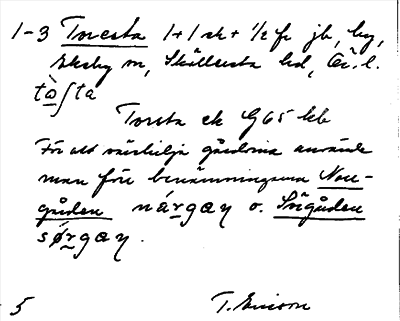 1-3 Toresta 1+1 sk + 1/2 fr jb, by,
Ekeby sn, Skyllersta hd, Ör. l.
tòʃta
Torsta sk G65 kb
För att särskilja gårdarna använde
man förr benämningarna Nor-
gården nárgaɳ o. Sörgården
sǿrgaɳ.
5 T. Ericson